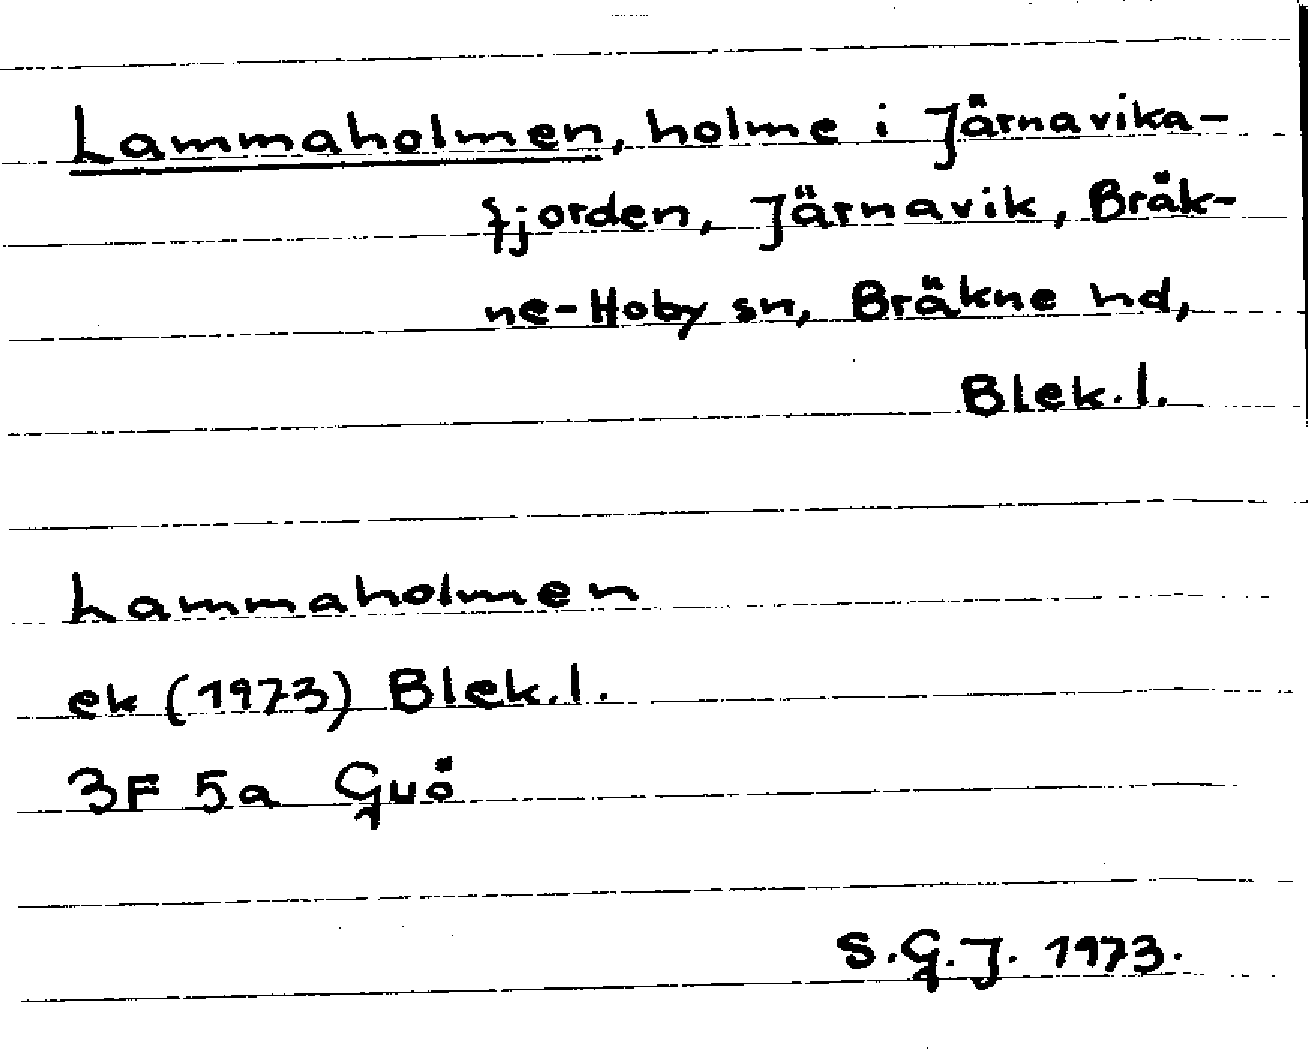 Lammaholmen, holme i Järnavika-
fjorden, Järnavik, Bräk-
ne-Hoby sn, Bräkne hd,
Blek.l.
Lammaholmen
ek (1973) Blek.l.
3F 5a Guö
S.G.J. 1973.